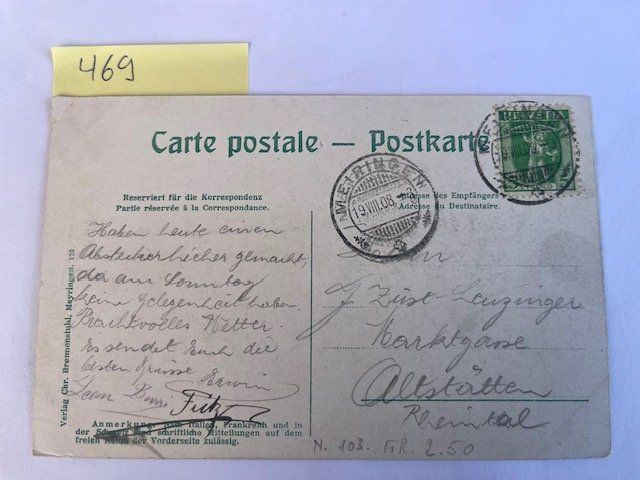 469
Carte postale — Postkarte
HELVETIA
MEIRINGEN
19.VIII.08.
Reserviert für die Korrespondenz
Partie réservée à la Correspondance.
Adresse des Empfängers
Adresse du Destinataire.
Haben heute einen
Abstecher hieher gemacht,
da am Sonntag
keine Gelegenheit haben.
Prachtvolles Wetter.
Es sendet Euch die
besten Grüsse Erwin
Fritz
J Züst-Leuzinger
Marktgasse
Altstätten
Rheintal
Verlag Chr. Brennenstuhl, Meyringen. 123
Anmerkung. Italien, Frankreich und in
der Schweiz sind schriftliche Mitteilungen auf dem
freien Raum der Vorderseite zulässig.
N. 103. FR. 2.50